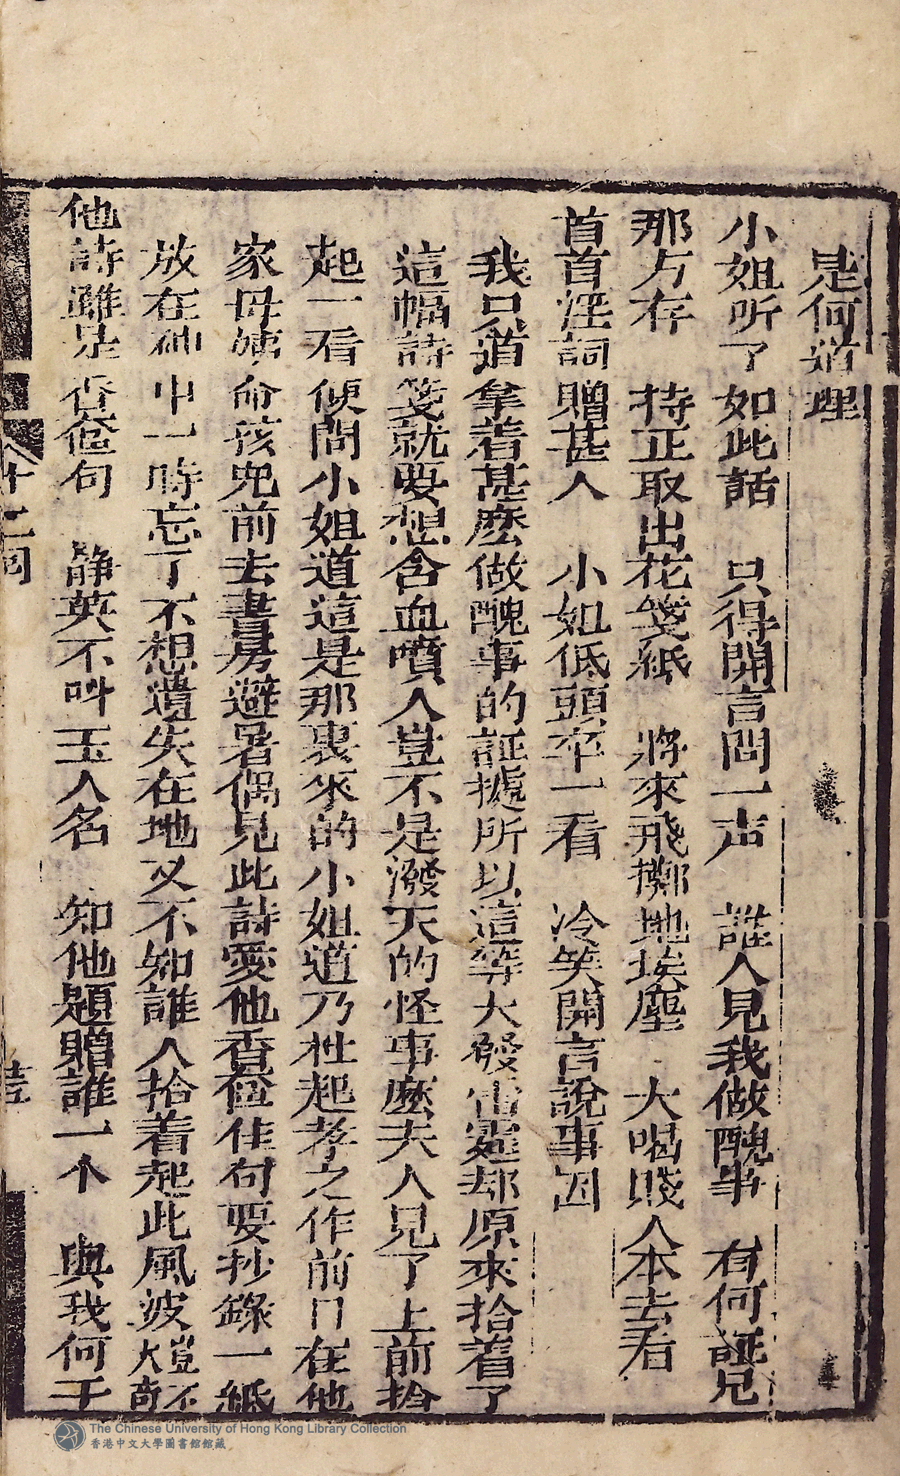 是何道理
小姐听了如此話　只得開言問一声　誰人見我做醜事　有何証見
那方存　持正取出花箋紙　將來飛擲地埃塵　大喝賤人本去看
首首淫詞贈甚人　小姐低頭卒一看　冷笑開言說事因
我只道拿着甚麽做醜事的証據所以這等大發雷霆却原來拾着了
這幅詩箋就要想含血噴人豈不是潑天的怪事麽夫人見了上前拾
起一看便問小姐道這是那裏來的小姐道乃杜起孝之作前日在他
家母姨命孩兒前去書房避暑偶見此詩愛他香奩佳句要抄錄一紙
放在神中一時忘了不想遺失在地又不知誰人拾着起此風波豈不大奇
他詩雖是香奩句　静英不叫玉人名　知他題贈誰一个　與我何干
十二回
The Chinese University of Hong Kong Library Collection
香港中文大學圖書館館藏